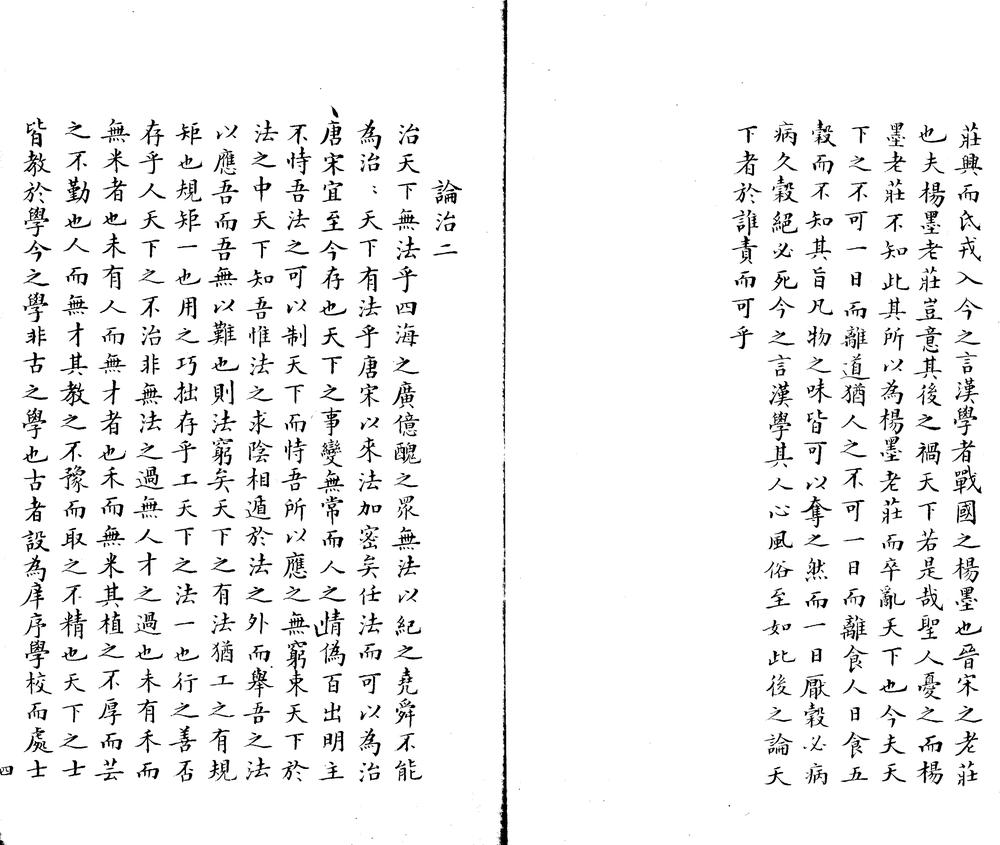 莊興而氐戎入今之言漢學者戰國之楊墨也晉宋之老莊
也夫楊墨老莊豈意其後之禍天下若是哉聖人憂之而楊
墨老莊不知此其所以為楊墨老莊而卒亂天下也今夫天
下之不可一日而離道猶人之不可一日而離食人日食五
穀而不知其旨凡物之味皆可以奪之然而一日厭穀必病
病久穀絕必死今之言漢學其人心風俗至如此後之論天
下者於誰責而可乎
論治二
治天下無法乎四海之廣億醜之眾無法以紀之堯舜不能
為治：天下有法乎唐宋以來法加密矣任法而可以為治
唐宋宜至今存也天下之事變無常而人之情偽百出明主
不恃吾法之可以制天下而恃吾所以應之無窮束天下於
法之中天下知吾惟法之求陰相遁於法之外而舉吾之法
以應吾而吾無以難也則法窮矣天下之有法猶工之有規
矩也規矩一也用之巧拙存乎工天下之法一也行之善否
存乎人天下之不治非無法之過無人才之過也未有禾而
無米者也未有人而無才者也禾而無米其植之不厚而芸
之不勤也人而無才其教之不豫而取之不精也天下之士
皆教於學今之學非古之學也古者設為庠序學校而處士
四